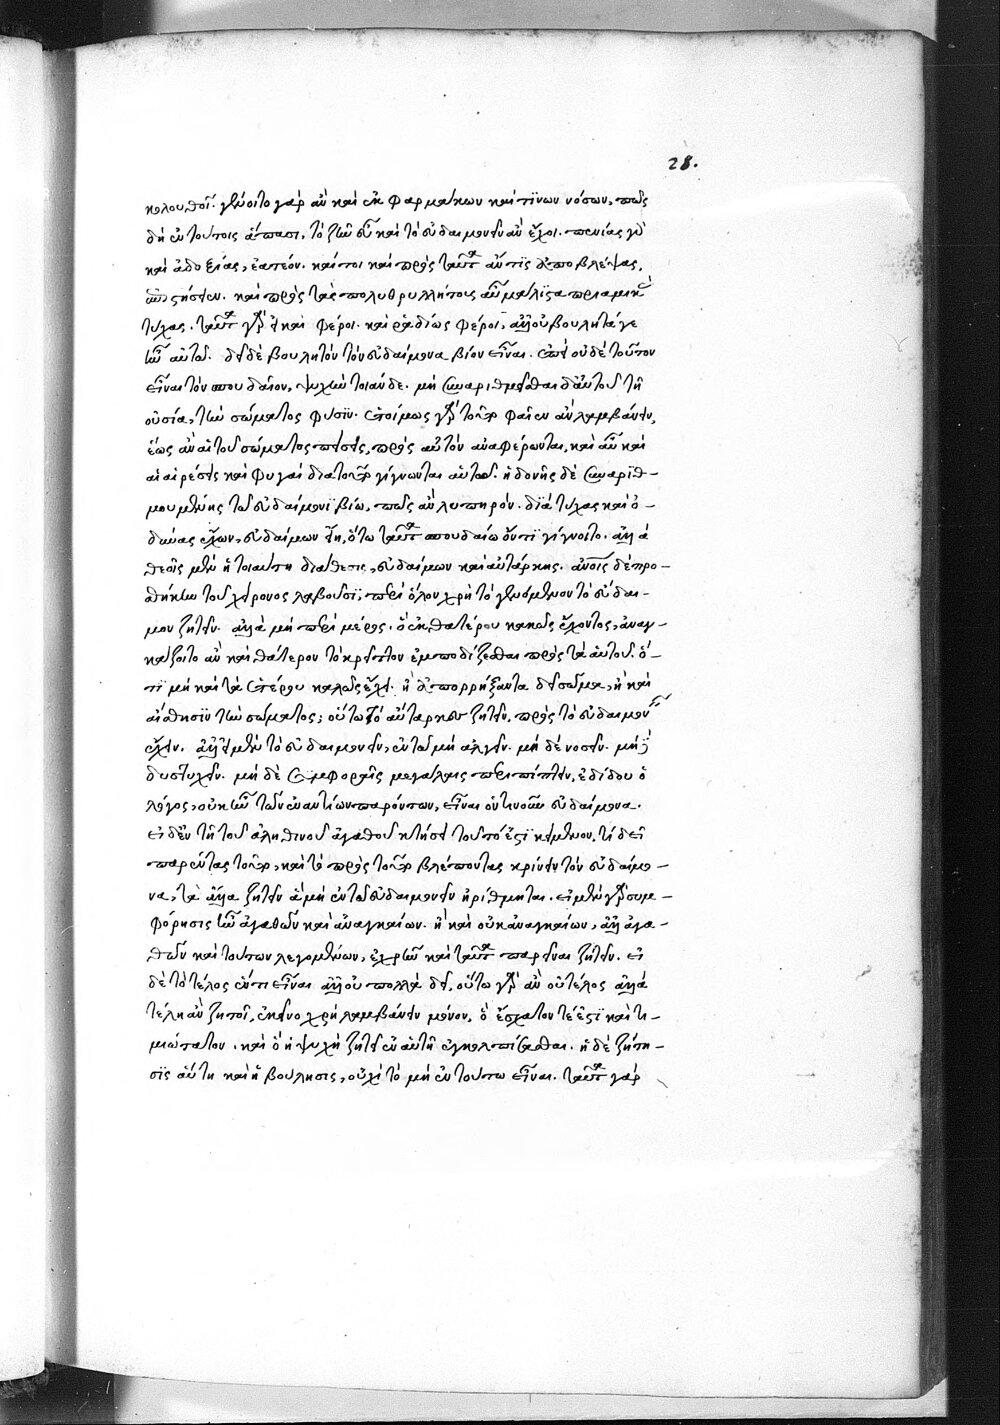 κολουθοῖ. γένοιτο γὰρ ἂν καὶ ἐκ φαρμάκων καί τινων νόσων, πῶς
δὴ ἐν τούτοις ἅπασι, τὸ ζῆν εὖ καὶ τὸ εὐδαιμονεῖν ἂν ἔχοι. πενίας γὰρ
καὶ ἀδοξίας, ἐατέον. καίτοι καὶ πρὸς ταῦτα ἄν τις ἀποβλέψας,
ἐπιστήσειεν. καὶ πρὸς τὰς πολυθρυλλήτους αὖ μάλιστα πριαμικὰς
τύχας. ταῦτα γὰρ εἰ καὶ φέροι. καὶ ῥαδίως φέροι, ἀλλ' οὐ βουλητά γε
ἦν αὐτῶ. δεῖ δὲ βουλητὸν τὸν εὐδαίμονα βίον εἶναι. ἐπεὶ οὐδὲ τοῦτον
εἶναι τὸν σπουδαῖον, ψυχὴν τοιάνδε. μὴ συναριθμεῖσθαι δ' αὐτοῦ τῆ
οὐσία, τὴν σώματος φύσιν. ἑτοίμως γὰρ τοῦτο φαῖεν ἂν λαμβάνειν,
ἕως ἂν αἱ τοῦ σώματος πείσεις, πρὸς αὐτὸν ἀναφέρωνται, καὶ αὖ καὶ
αἱ αἱρέσεις καὶ φυγαὶ διὰ τοῦτο γίγνωνται αὐτῶ. ἡδονῆς δὲ συναριθ-
μουμένης τῶ εὐδαίμονι βίω, πῶς ἂν λυπηρόν. διὰ τύχας καὶ ὀ-
δύνας ἔχων, εὐδαίμων εἴη, ὅτω ταῦτα σπουδαίω ὄντι γίγνοιτο. ἀλλὰ
θεοῖς μὲν ἡ τοιαύτη διάθεσις, εὐδαίμων καὶ αὐτάρκης. ἀνοις δὲ προ-
σθήκην τοῦ χείρονος λαβοῦσι, περὶ ὅλον χρὴ τὸ γενόμενον τὸ εὐδαι-
μον ζητεῖν. ἀλλὰ μὴ περὶ μέρος. ὃ ἐκ θατέρου κακῶς ἔχοντος, ἀναγ-
κάζοιτο ἂν καὶ θάτερον τὸ κρεῖττον ἐμποδίζεσθαι πρὸς τὰ αὐτοῦ. ὅ-
τι μὴ καὶ τὰ ἑτέρου καλῶς ἔχει. ἢ ἀπορρήξαντα δεῖ σῶμα, ἢ καὶ
αἴσθησιν τὴν σώματος; οὕτω τὸ αὔταρκες ζητεῖν, πρὸς τὸ εὐδαιμονεῖν
ἔχειν. ἀλλ' εἰ μὲν τὸ εὐδαιμονεῖν, ἐν τῶ μὴ ἀλγεῖν. μὴ δὲ νοσεῖν. μὴ δὲ
δυστυχεῖν. μὴ δὲ συμφοραῖς μεγάλαις περιπίπτειν, ἐδίδου ὁ
λόγος, οὐκ ἦν τῶν ἐναντίων παρόντων, εἶναι ὁντινοῦν εὐδαίμονα.
εἰ δ' ἐν τῆ τοῦ ἀληθινοῦ ἀγαθοῦ κτήσει τοῦτό ἐστι κείμενον, τί δεῖ
παρέντας τοῦτο, καὶ τὸ πρὸς τοῦτο βλέποντας κρίνειν τὸν εὐδαίμο-
να, τὰ ἄλλα ζητεῖν ἃ μὴ ἐν τῶ εὐδαιμονεῖν ἠρίθμηται. εἰ μὲν γὰρ συμ-
φόρησις ἦν ἀγαθῶν καὶ ἀναγκαίων. ἢ καὶ οὐκ ἀναγκαίων, ἀλλ' ἀγα-
θῶν καὶ τούτων λεγομένων, ἐχρῆν καὶ ταῦτα παρεῖναι ζητεῖν. εἰ
δὲ τὸ τέλος ἕν τι εἶναι ἀλλ' οὐ πολλὰ δεῖ, οὕτω γὰρ ἂν οὐ τέλος ἀλλὰ
τέλη ἂν ζητοῖ, ἐκεῖνο χρὴ λαμβάνειν μόνον. ὃ ἔσχατόν τέ ἐστι καὶ τι-
μιώτατον. καὶ ὃ ἡ ψυχὴ ζητεῖ ἐν αὐτῆ ἐγκολπίσασθαι. ἡ δὲ ζήτη-
σις αὕτη καὶ ἡ βούλησις, οὐχὶ τὸ μὴ ἐν τούτω εἶναι. ταῦτα γὰρ
28.